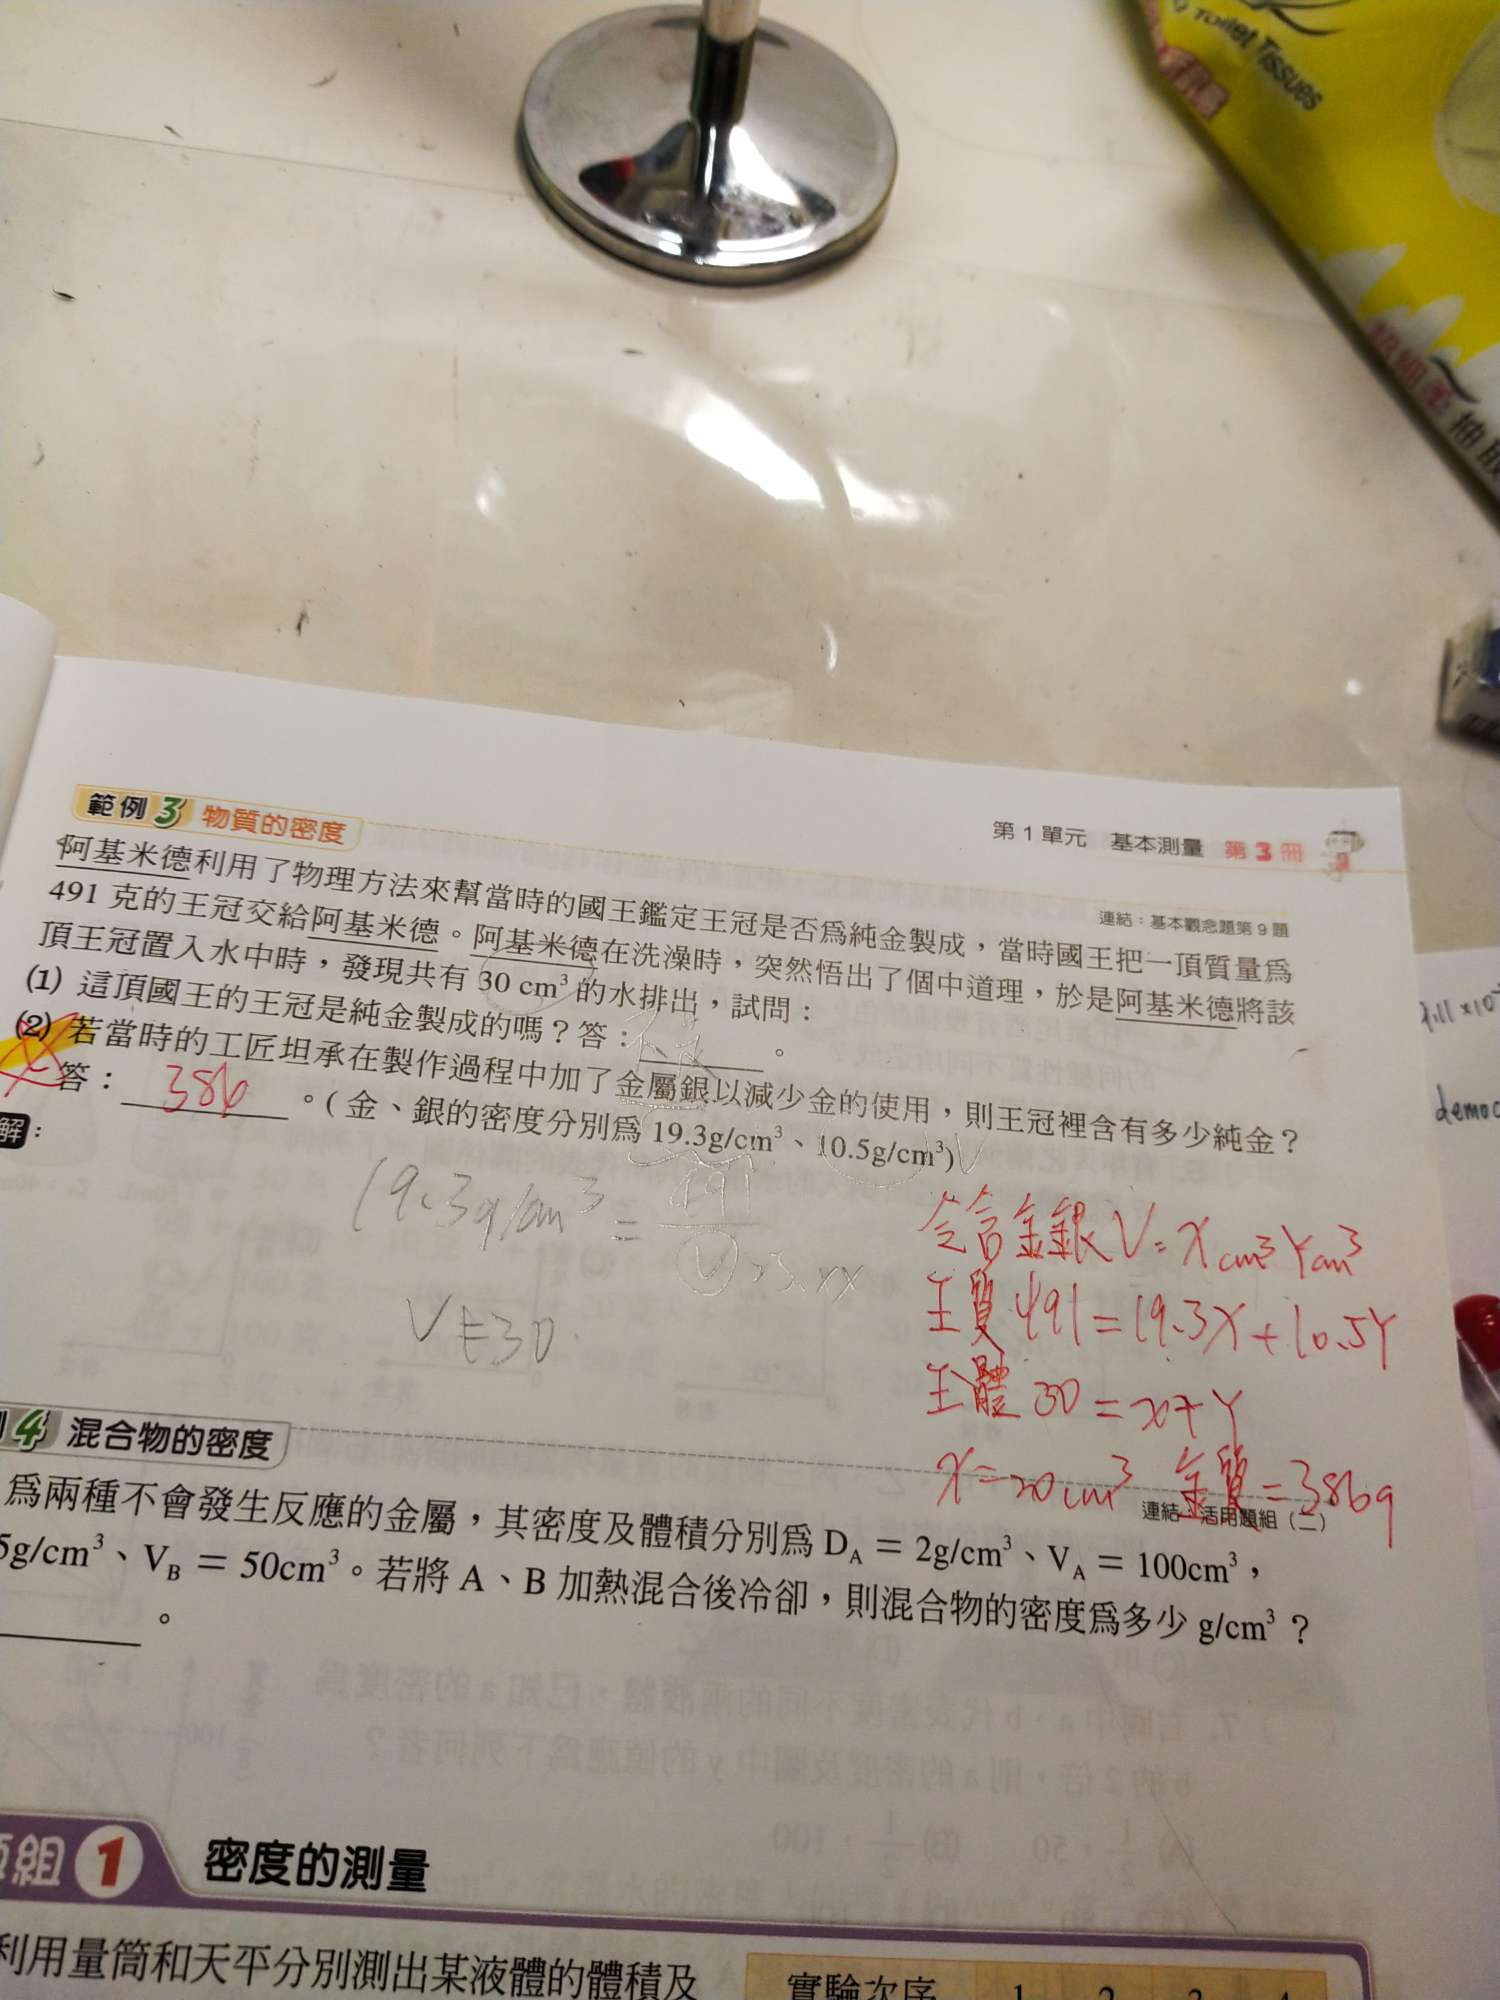 Toilet Tissues
抽取
第1單元 基本測量 第3冊
範例3 物質的密度
連結：基本觀念題第9題
阿基米德利用了物理方法來幫當時的國王鑑定王冠是否為純金製成，當時國王把一頂質量為
491克的王冠交給阿基米德。阿基米德在洗澡時，突然悟出了個中道理，於是阿基米德將該
頂王冠置入水中時，發現共有30 cm³的水排出，試問：
(1) 這頂國王的王冠是純金製成的嗎？答：不是。
(2) 若當時的工匠坦承在製作過程中加了金屬銀以減少金的使用，則王冠裡含有多少純金？
答：386。(金、銀的密度分別為19.3g/cm³、10.5g/cm³)
解：
19.3g/cm³ = 491
V
V≠30
令含金銀V=Xcm³Ycm³
王質491=19.3X+10.5Y
王體30=X+Y
X=20cm³ 金質=386g
9.11×10
democ
4 混合物的密度
連結：活用題組（二）
為兩種不會發生反應的金屬，其密度及體積分別為D_A＝2g/cm³、V_A＝100cm³，
5g/cm³、V_B＝50cm³。若將A、B加熱混合後冷卻，則混合物的密度為多少g/cm³？
。
題組1 密度的測量
利用量筒和天平分別測出某液體的體積及
實驗次序 1 2 3 4